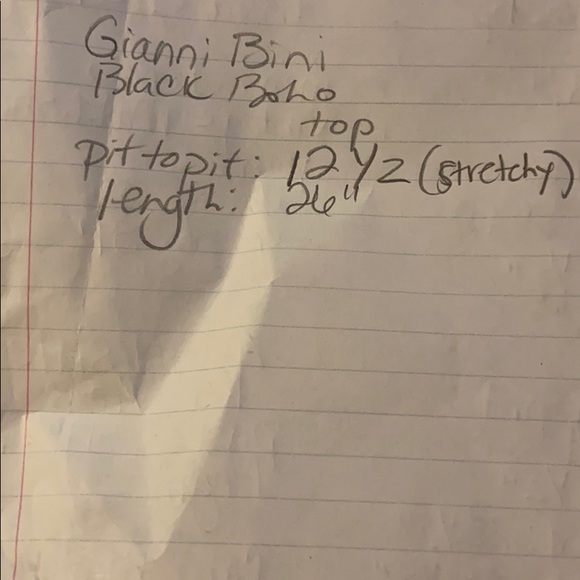 Gianni Bini
Black Boho
top
pit to pit: 12 1/2 (stretchy)
length: 26"